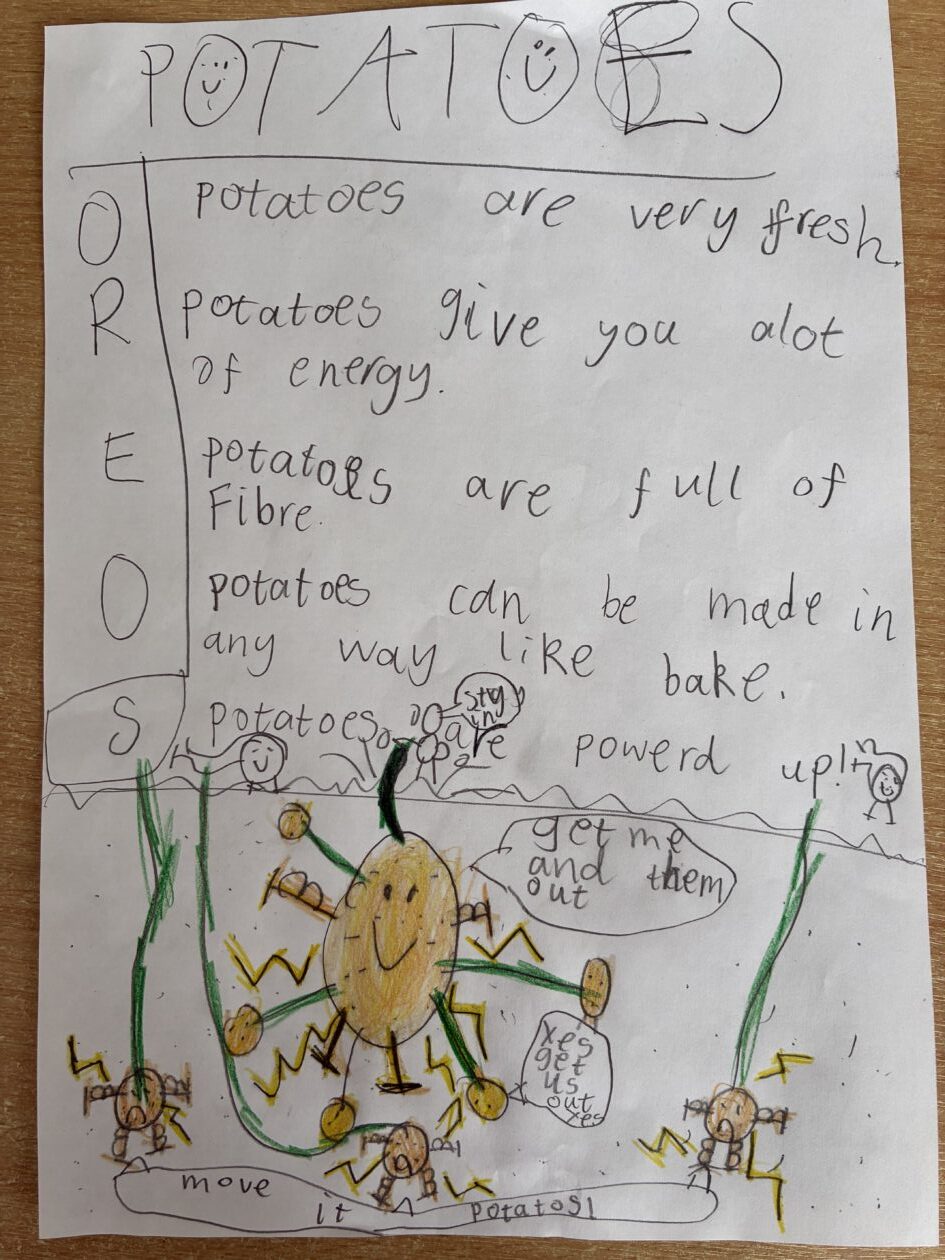 POTATOES
O potatoes are very fresh.
R potatoes give you alot
of energy.
E potatoes are full of
Fibre.
O potatoes can be made in
any way like bake.
S potatoes are powerd up!
get me
and them
out
yes
get
us
out
yes
move it potatos!